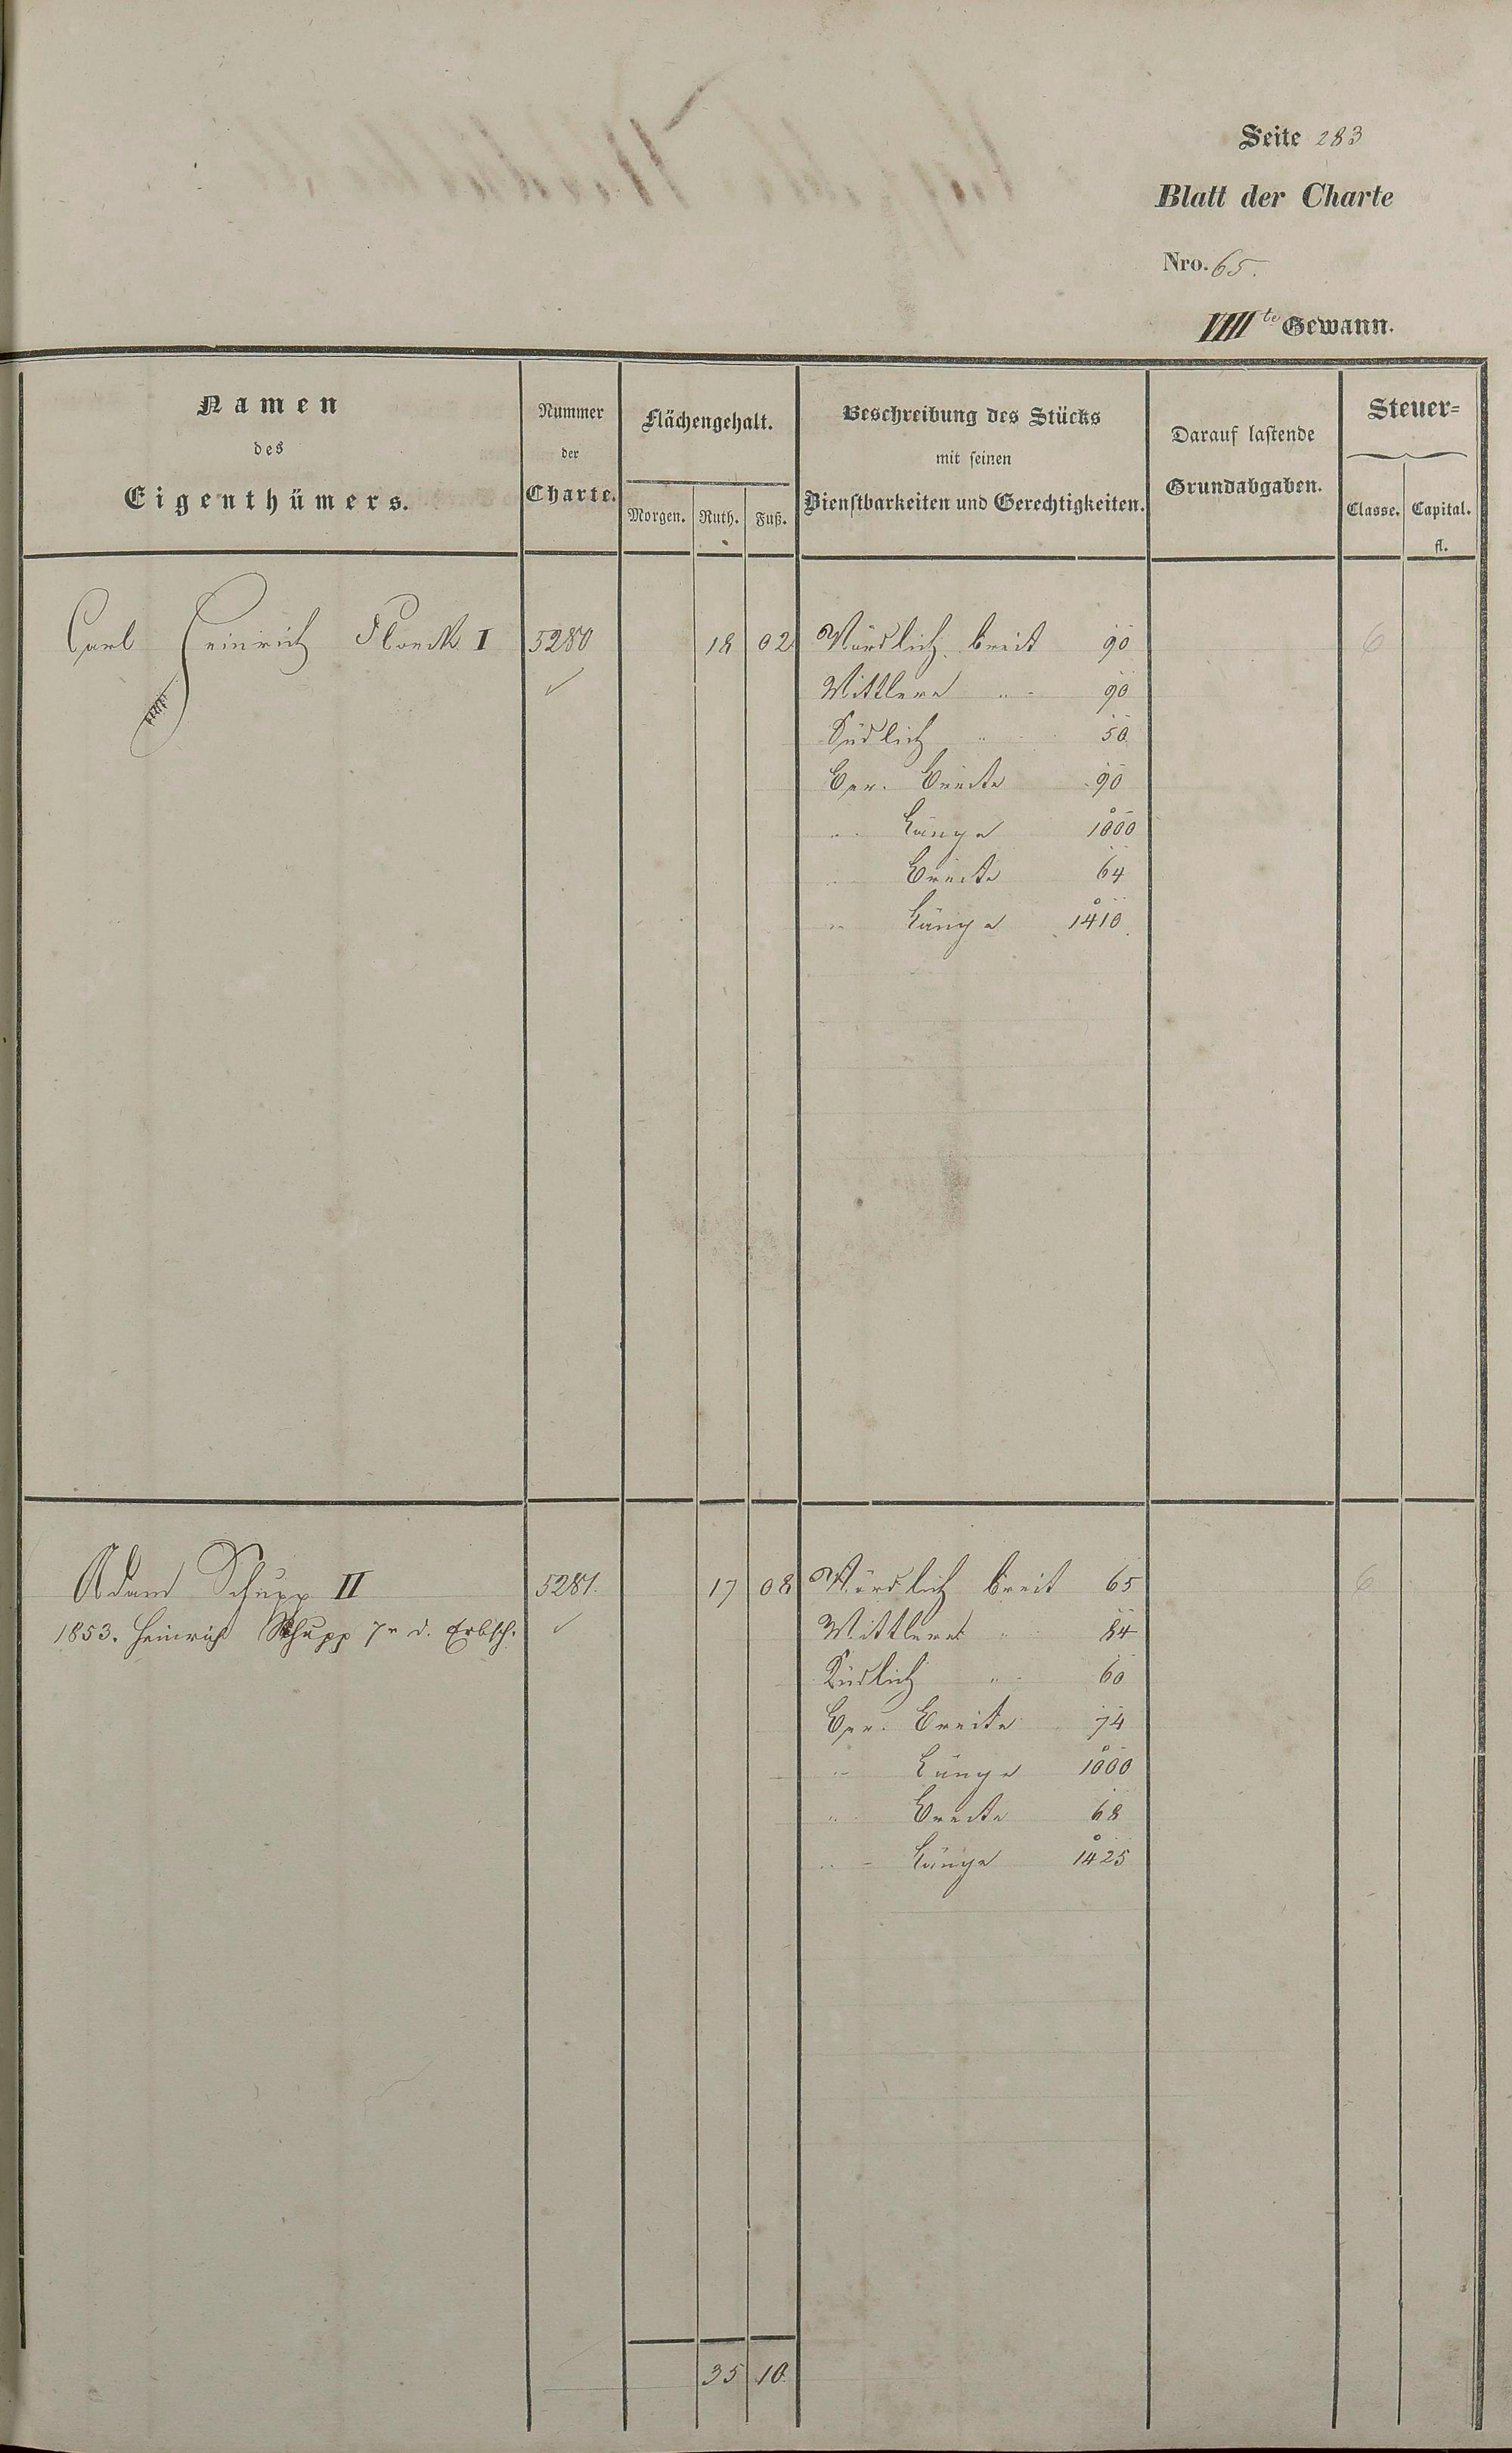 Seite 283
Blatt der Charte
Nro. 65.
VIIII te Gewann.
Namen
des
Eigenthümers.
Nummer
der
Charte.
Flächengehalt.
Morgen. Ruth. Fuß.
Beschreibung des Stücks
mit seinen
Dienstbarkeiten und Gerechtigkeiten.
Darauf lastende
Grundabgaben.
Steuer=
Classe. Capital.
fl.
Carl Heinrich Floeck I 5280 18 02 Nördlich breit 90 6
Mittlere " 90
Südlich " 50
Ber. Breite 90
" Länge 1000
" Breite 64
" Länge 1410
Adam Schupp II 5281. 17 08 Nördlich breit 65 6
1853. Heinrich Schupp 7r d. Erbsch. Mittlere " 84
Südlich " 60
Ber. Breite 74
" Länge 1000
" Breite 68
" Länge 1425
35 10